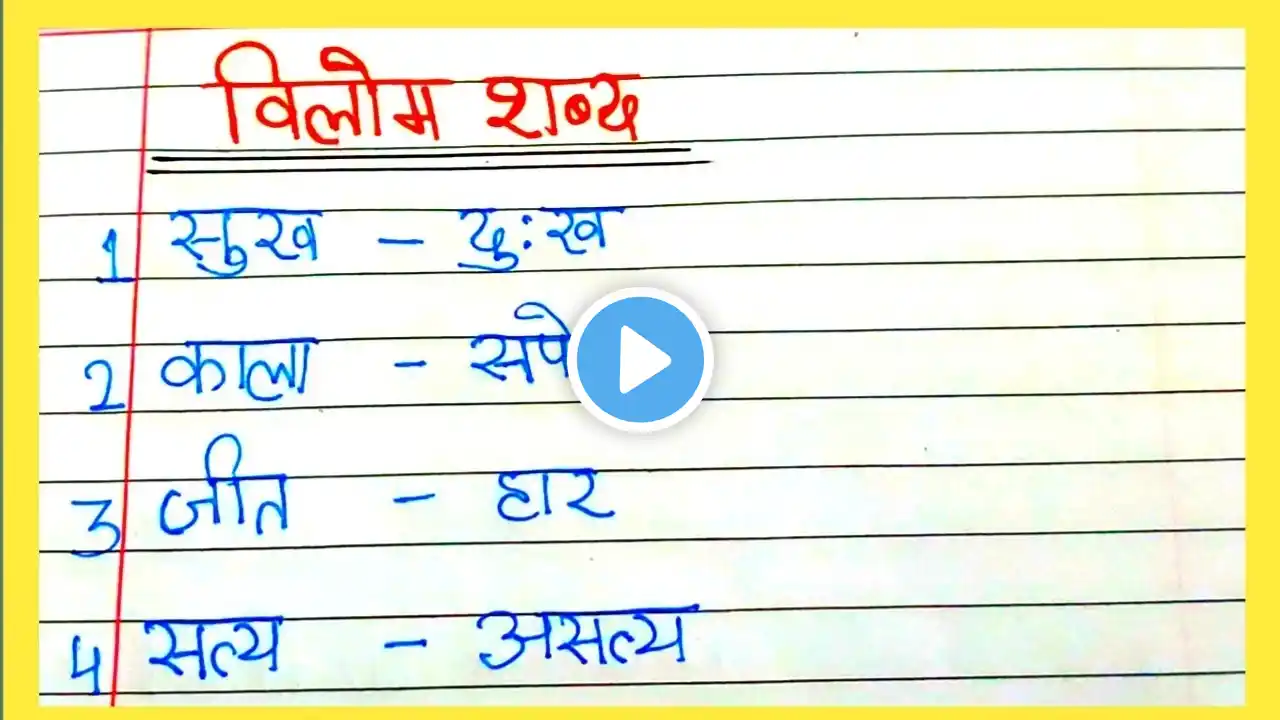 विलोम शब्द
1 सुख - दुःख
2 काला -
3 जीत - हार
4 सत्य - असत्य